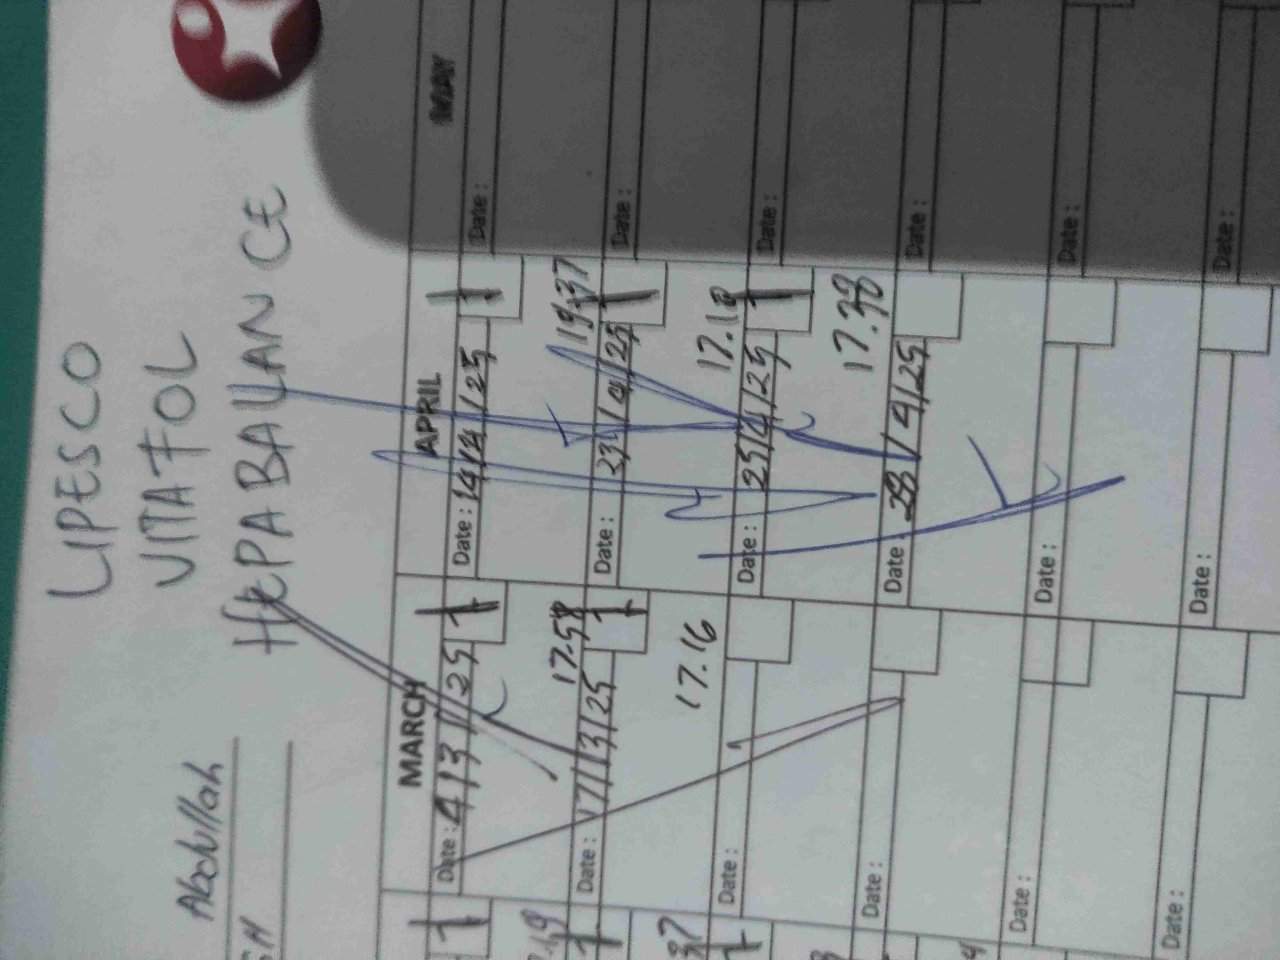 LIPESCO
VITAFOL
HEPABALANCE
Abdullah
MARCH
APRIL
MAY
Date: 4/3/25
Date: 14/4/25
Date:
17.58
19.37
Date: 17/3/25
Date: 23/4/25
Date:
17.16
17.18
Date:
Date: 25/4/25
Date:
17.38
Date:
Date: 28/4/25
Date:
Date:
Date:
Date:
Date:
Date: